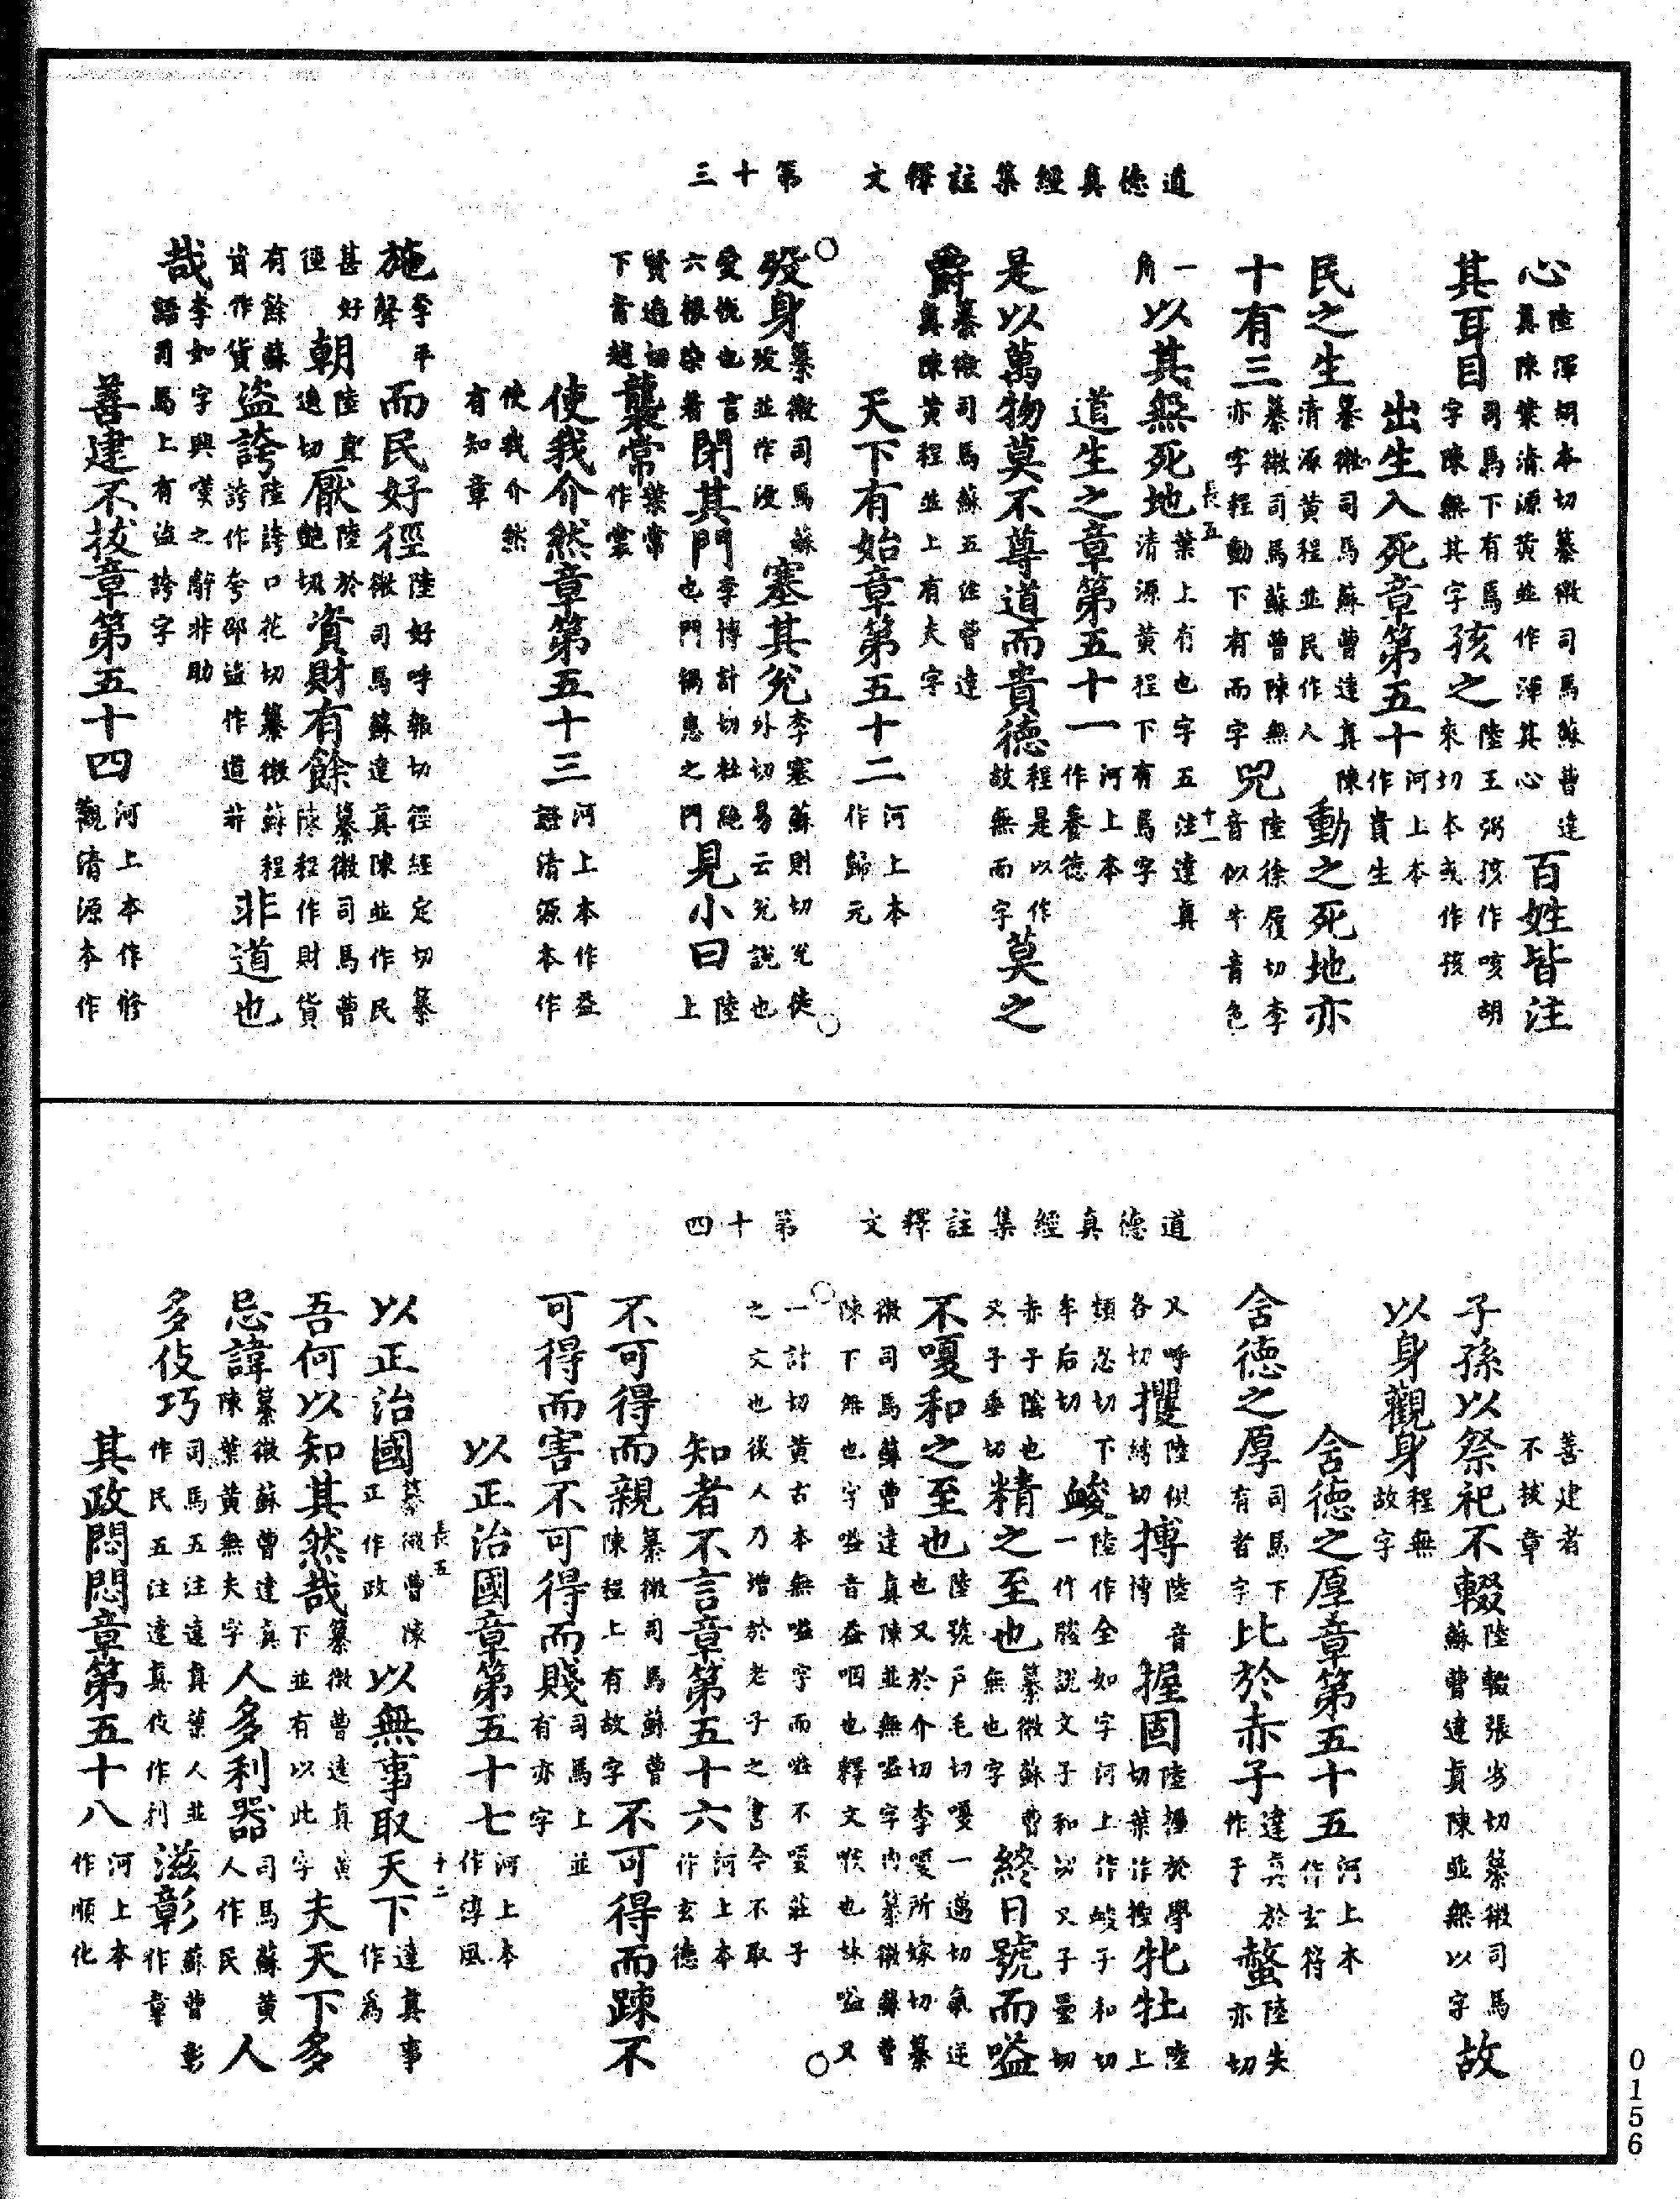 道德真經集註釋文 第十三
心 陸渾胡本切纂微司馬蘇曹達真陳葉清源黃並作渾其心 百姓皆注
其耳目 司馬下有焉字陳無其字 孩之 陸王弼孩作咳胡來切本或作孩
出生入死章第五十 河上本作貴生
民之生 纂微司馬蘇曹達真陳清源黃程並民作人 動之死地亦
十有三 纂微司馬蘇曹陳無亦字程動下有而字 兕 陸徐履切李音似牛音色
一角 以其無死地 葉上有也字五注達真清源黃程下有焉字
長五 十一
道生之章第五十一 河上本作養德
是以萬物莫不尊道而貴德 程是以作故無而字 莫之
爵 纂微司馬蘇五注曹達真陳黃程並上有夫字
天下有始章第五十二 河上本作歸元
歿身 纂微司馬蘇歿並作沒 塞其兌 李塞蘇則切兌徒外切易云兌說也
愛悅也言六根染著 閉其門 李博計切杜絕也門禍患之門 見小曰 陸上
賢遍切下音越 襲常 葉常作裳
使我介然章第五十三 河上本作益證清源本作
使我介然有知章
施 李平聲 而民好徑 陸好呼報切徑經定切纂微司馬蘇達真陳並作民
甚好徑 朝 陸直遙切 厭 陸於艷切 資財有餘 纂微司馬曹陳程作財貨
有餘蘇資作貨 盜誇 陸誇口花切纂微蘇程誇作夸邵盜作道非 非道也
哉 李如字與嘆之辭非助語司馬上有盜誇字
善建不拔章第五十四 河上本作修觀清源本作
道德真經集註釋文 第十四
善建者不拔章
子孫以祭祀不輟 陸輟張劣切纂微司馬蘇曹達真陳並無以字 故
以身觀身 程無故字
含德之厚章第五十五 河上本作玄符
含德之厚 司馬下有者字 比於赤子 達真於作于 螫 陸失亦切
又呼各切 攫 陸俱縛切 搏 陸音博 握固 陸握於學切葉作 牝牡 陸上
頻忍切下牟后切 峻 陸作全如字河上作峻子和切一作朘說文子和切又子壘切
赤子陰也又子垂切 精之至也 纂微蘇曹無也字 終日號而嗌
不嗄和之至也 陸號戶毛切嗄一邁切氣逆也又於介切李嗄所嫁切纂
微司馬蘇曹達真陳並無嗌字內纂微蘇曹陳下無也字嗌音益咽也釋文喉也林嗌又
一計切黃古本無嗌字而嗌不嗄莊子之文也後人乃增於老子之書今不取
知者不言章第五十六 河上本作玄德
不可得而親 纂微司馬蘇曹陳程上有故字 不可得而踈不
可得而害不可得而賤 司馬上並有亦字
以正治國章第五十七 河上本作淳風
長五 十二
以正治國 纂微曹陳正作政 以無事取天下 達真事作為
吾何以知其然哉 纂微曹達真黃下並有以此字 夫天下多
忌諱 纂微蘇曹達真陳葉黃無夫字 人多利器 司馬蘇黃人作民 人
多伎巧 司馬五注達真葉人並作民五注達真伎作利 滋彰 蘇曹彰作章
其政悶悶章第五十八 河上本作順化
0156